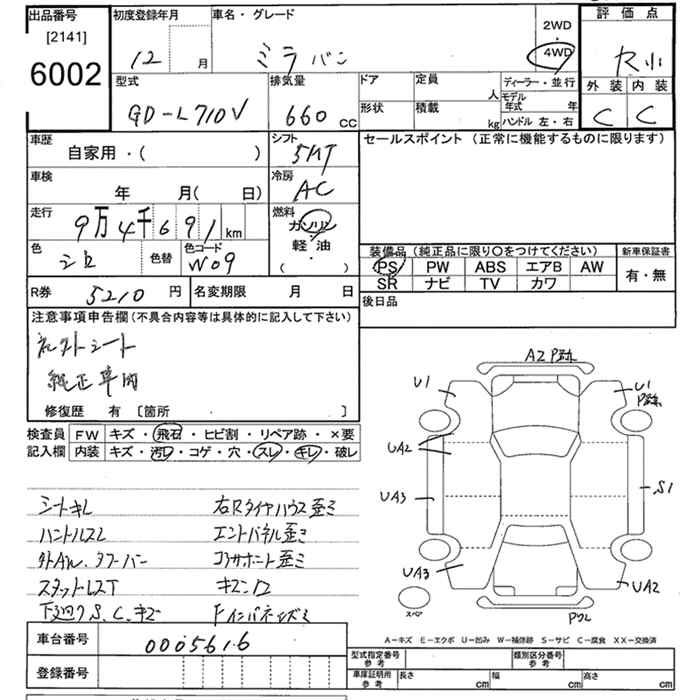 出品番号 初度登録年月 車名・グレード 2WD ・ 4WD 評価点
[2141]
6002
12 月 ミラバン
型式 排気量 ドア 定員 人 ディーラー・並行 外装 内装
GD-L710V 660 CC 形状 積載 kg モデル年式 年 C C
ハンドル 左・右
車歴 自家用・( ) シフト 5MT セールスポイント (正常に機能するものに限ります)
車検 年 月( 日) 冷房 AC
走行 9万4千691km 燃料 ガソリン
軽・油
( ・ )
色 シロ 色替 色コード W09
装備品(純正品に限り○をつけてください) 新車保証書
PS PW ABS エアB AW 有・無
SR ナビ TV カワ
R券 5210 円 名変期限 月 日 後日品
注意事項申告欄(不具合内容等は具体的に記入して下さい)
純正車両
修復歴 有 [箇所 ]
検査員 FW キズ・飛石・ヒビ割・リペア跡・×要
記入欄 内装 キズ・汚レ・コゲ・穴・スレ・キレ・破レ
シートキレ 右Rタイヤハウス歪ミ
ハンドルスレ エンドパネル歪ミ
外AW、タワーバー コアサポート歪ミ
スタッドレスT キズ凹
下廻りS、C、キズ Fインパネキズミ
A2 P跡
U1 U1 P跡
UA2
UA3 S1
UA3 UA2
スペア P凹
車台番号 0005616
登録番号
A-キズ E-エクボ U-凹み W-補修跡 S-サビ C-腐食 XX-交換済
型式指定番号 参考 類別区分番号 参考
車庫証明所 参考 長さ cm 幅 cm 高さ cm